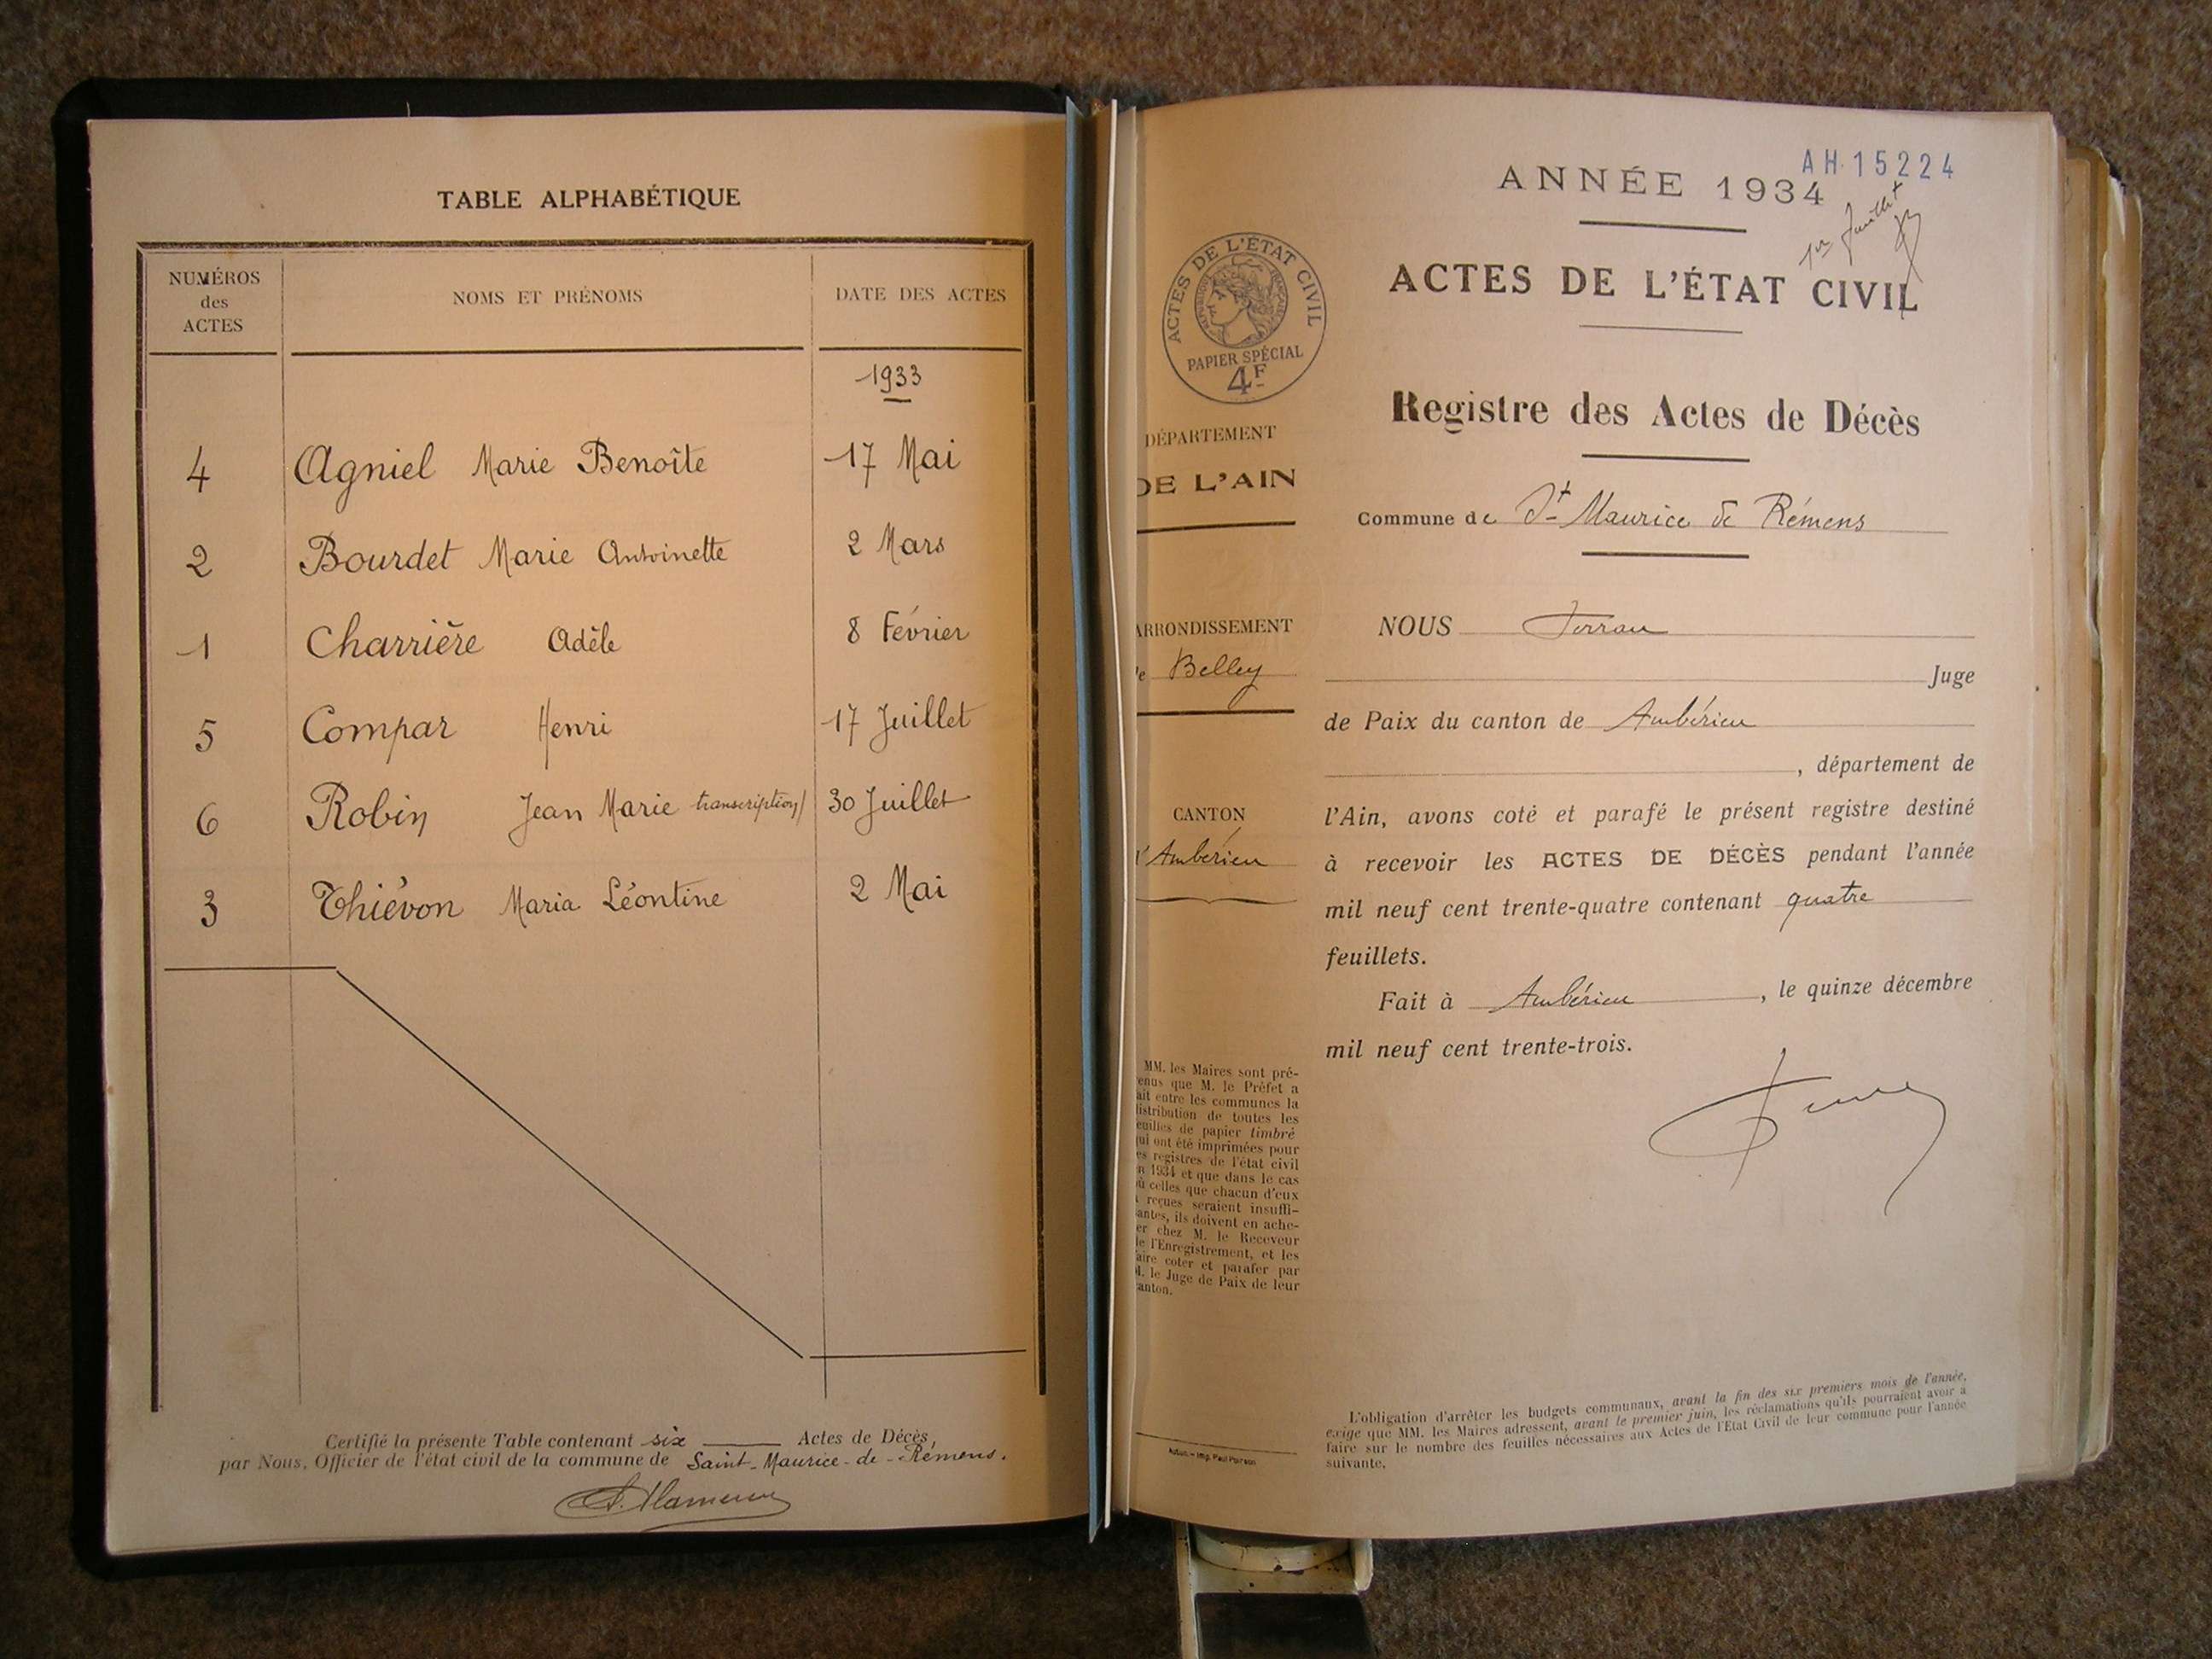 TABLE ALPHABÉTIQUE
NUMÉROS
des
ACTES
NOMS ET PRÉNOMS
DATE DES ACTES
1933
4 Agniel Marie Benoîte 17 Mai
2 Bourdet Marie Antoinette 2 Mars
1 Charrière Adèle 8 Février
5 Compar Henri 17 Juillet
6 Robin Jean Marie transcription 30 Juillet
3 Thiévon Maria Léontine 2 Mai
Certifié la présente Table contenant six Actes de Décès,
par Nous, Officier de l'état civil de la commune de Saint-Maurice-de-Rémens.
AH 15224
ANNÉE 1934
1er Juillet
ACTES DE L'ÉTAT CIVIL
ACTES DE L'ÉTAT CIVIL
RÉPUBLIQUE FRANÇAISE
PAPIER SPÉCIAL
4F
Registre des Actes de Décès
DÉPARTEMENT
DE L'AIN
Commune de St Maurice de Rémens
ARRONDISSEMENT
de Belley
CANTON
d'Ambérieu
NOUS
Juge
de Paix du canton de Ambérieu
, département de
l'Ain, avons coté et parafé le présent registre destiné
à recevoir les ACTES DE DÉCÈS pendant l'année
mil neuf cent trente-quatre contenant quatre
feuillets.
Fait à Ambérieu, le quinze décembre
mil neuf cent trente-trois.
MM. les Maires sont pré-
enus que M. le Préfet a
ait entre les communes la
listribution de toutes les
euilles de papier timbré
qui ont été imprimées pour
es registres de l'état civil
n 1934 et que dans le cas
où celles que chacun d'eux
a reçues seraient insuffi-
antes, ils doivent en ache-
er chez M. le Receveur
de l'Enregistrement, et les
aire coter et parafer par
M. le Juge de Paix de leur
anton.
Autun. — Imp. Paul Poirson
L'obligation d'arrêter les budgets communaux, avant la fin des six premiers mois de l'année,
exige que MM. les Maires adressent, avant le premier juin, les réclamations qu'ils pourraient avoir à
faire sur le nombre des feuilles nécessaires aux Actes de l'Etat Civil de leur commune pour l'année
suivante.